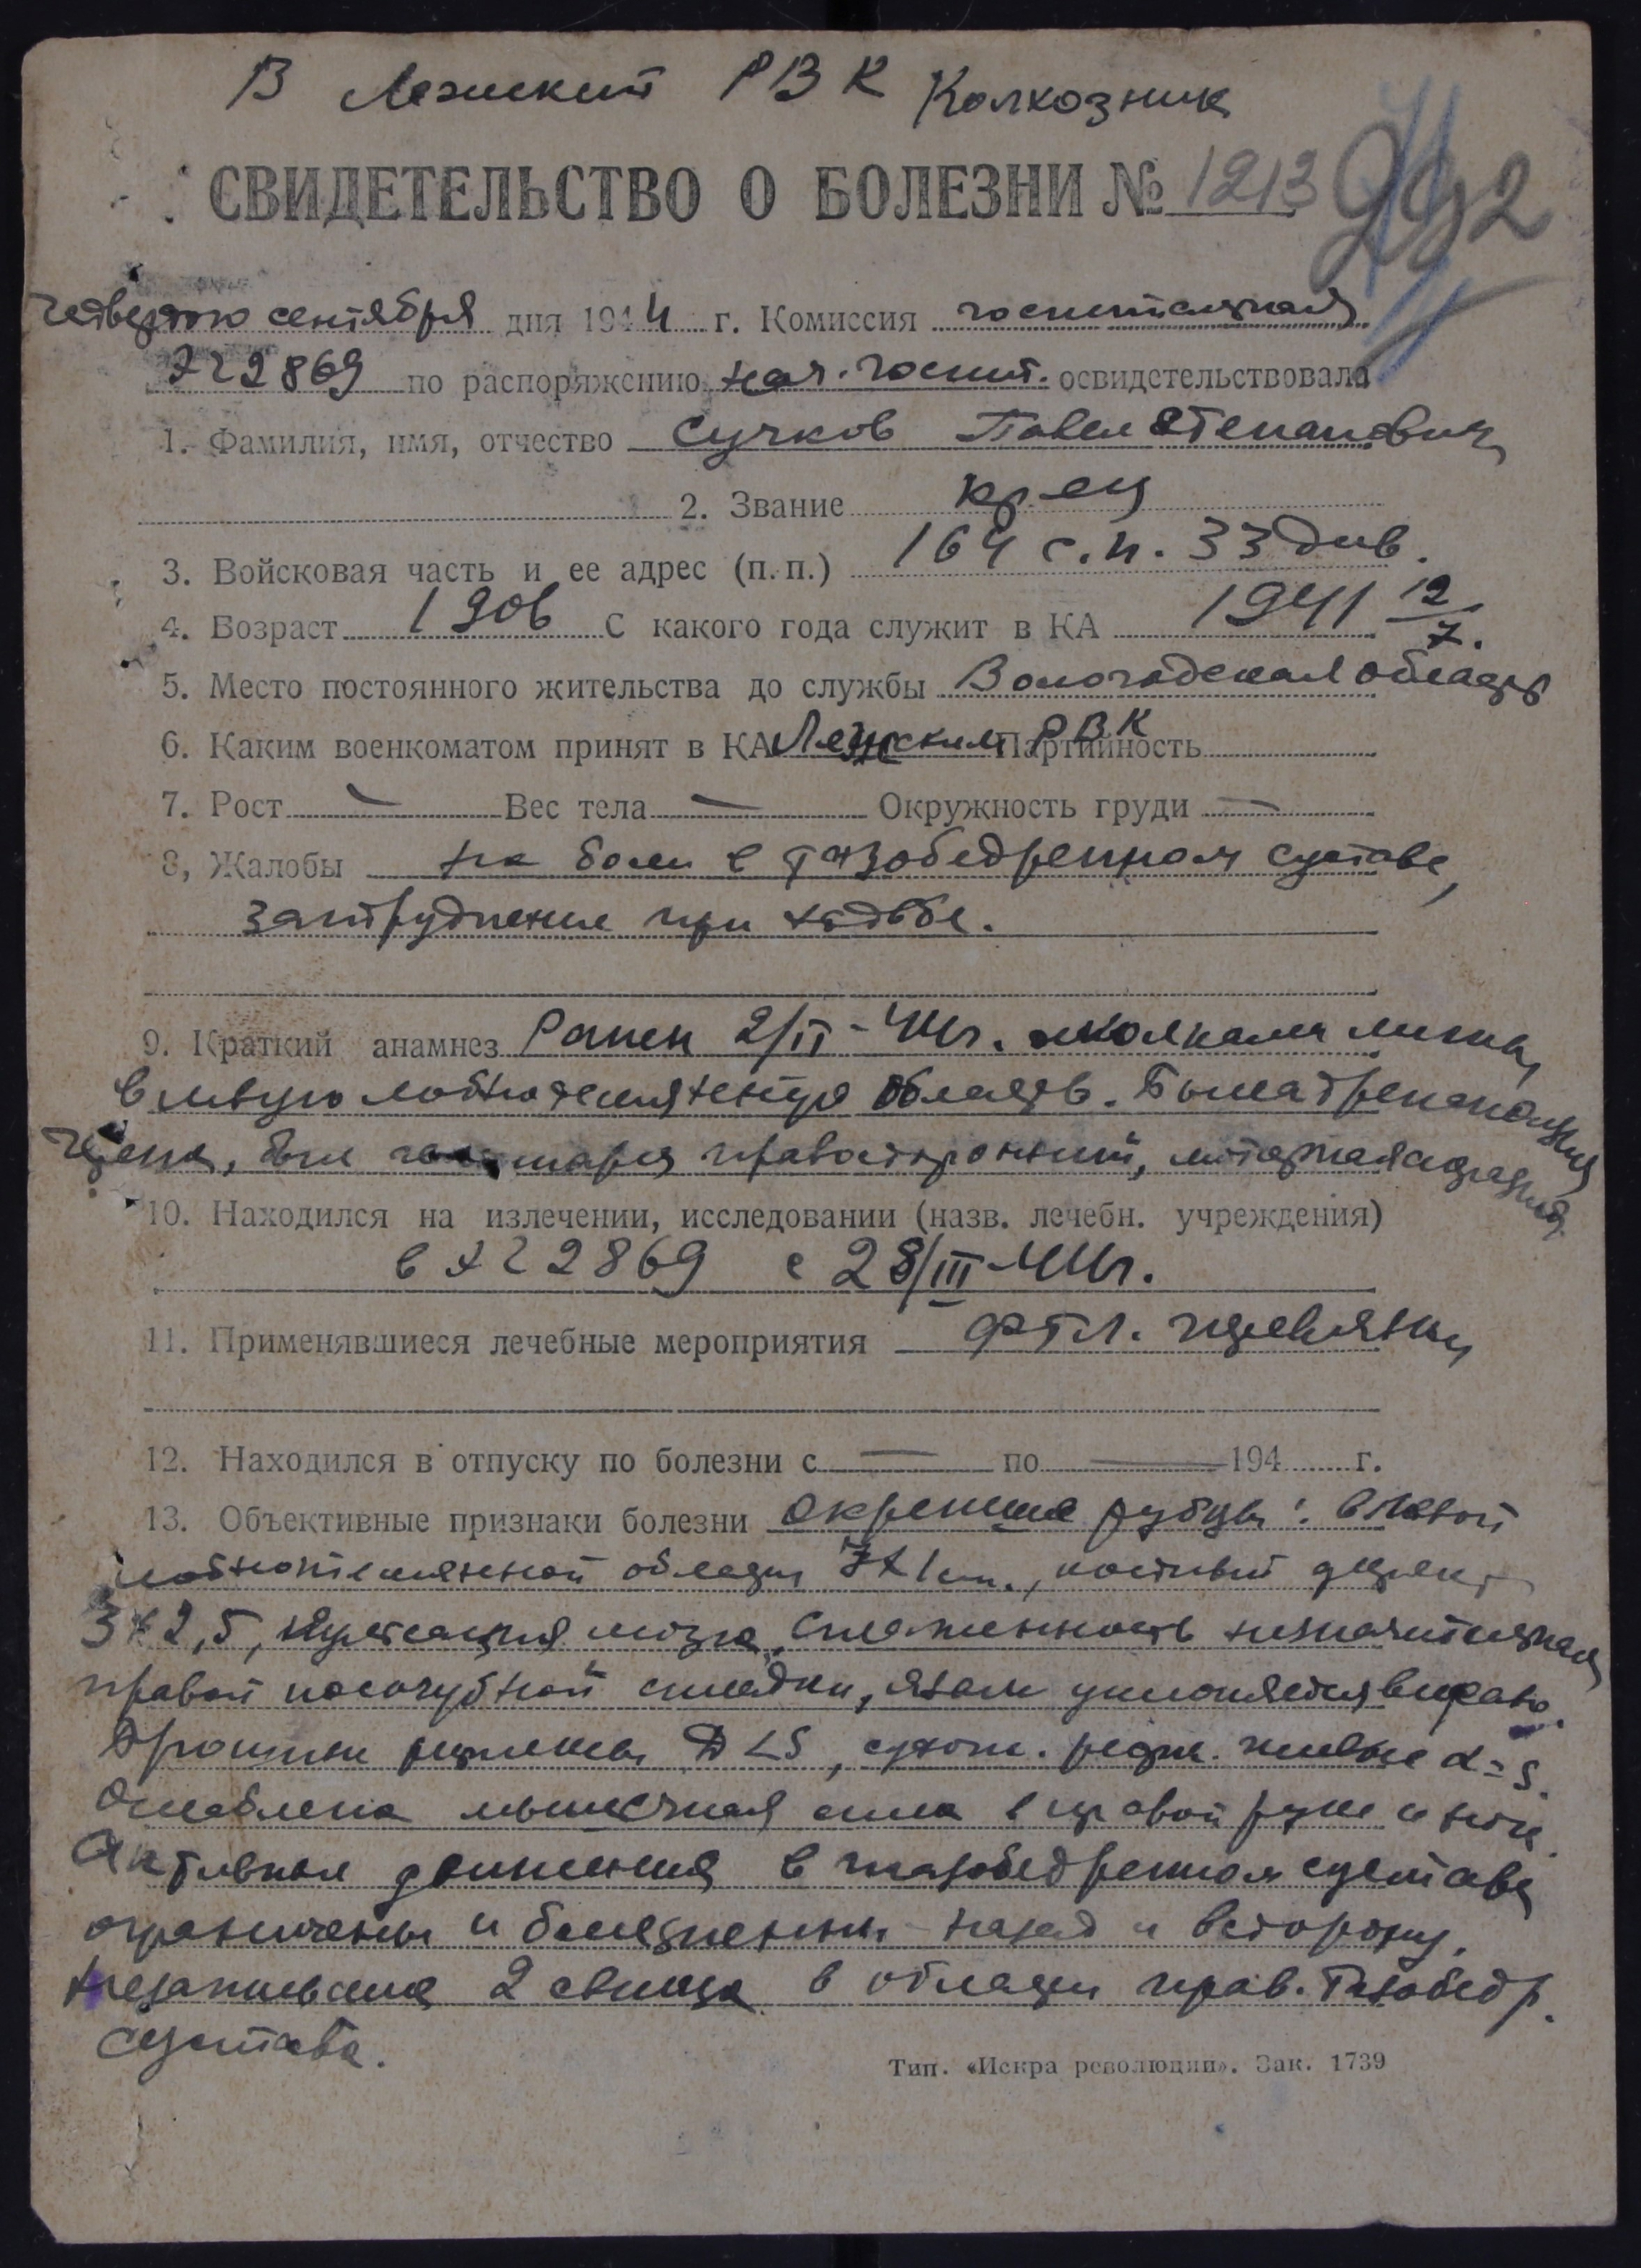 В Лежский РВК Колхозник
СВИДЕТЕЛЬСТВО О БОЛЕЗНИ № 1213
992
четвертого сентября дня 1944 г. Комиссия госпитальная
ЭГ 2869 по распоряжению нач. госпит. освидетельствовала
1. Фамилия, имя, отчество Сучков Павел Степанович
2. Звание кр-ец
3. Войсковая часть и ее адрес (п. п.) 164 с.п. 33 див.
4. Возраст 1906 С какого года служит в КА 1941 12/7.
5. Место постоянного жительства до службы Вологодская область
6. Каким военкоматом принят в КА Лежским РВК Партийность
7. Рост — Вес тела — Окружность груди —
8, Жалобы на боли в тазобедренном суставе,
затруднение при ходьбе.
9. Краткий анамнез Ранен 2/II-44г. осколками мины
в левую лобно теменную область. Была трепанация
черепа, был правосторонний,
10. Находился на излечении, исследовании (назв. лечебн. учреждения)
в ЭГ 2869 с 28/III-44г.
11. Применявшиеся лечебные мероприятия ФТЛ. перевязки
12. Находился в отпуску по болезни с — по — 194 г.
13. Объективные признаки болезни Окрепшие рубцы: в левой
лобнотеменной области 7х1см., костный дефект
3х2,5, пульсация мозга, сглаженность незначительная
правой носогубной складки, язык уклоняется вправо.
Брюшные рефлексы D<S, сухож. рефл. живые d=s.
Ослаблена мышечная сила в правой руке и ноге.
Активные движения в тазобедренном суставе
ограничены и болезненны назад и в сторону.
Незажившие 2 свища в области прав. тазобедр.
сустава.
Тип. «Искра революции». Зак. 1739